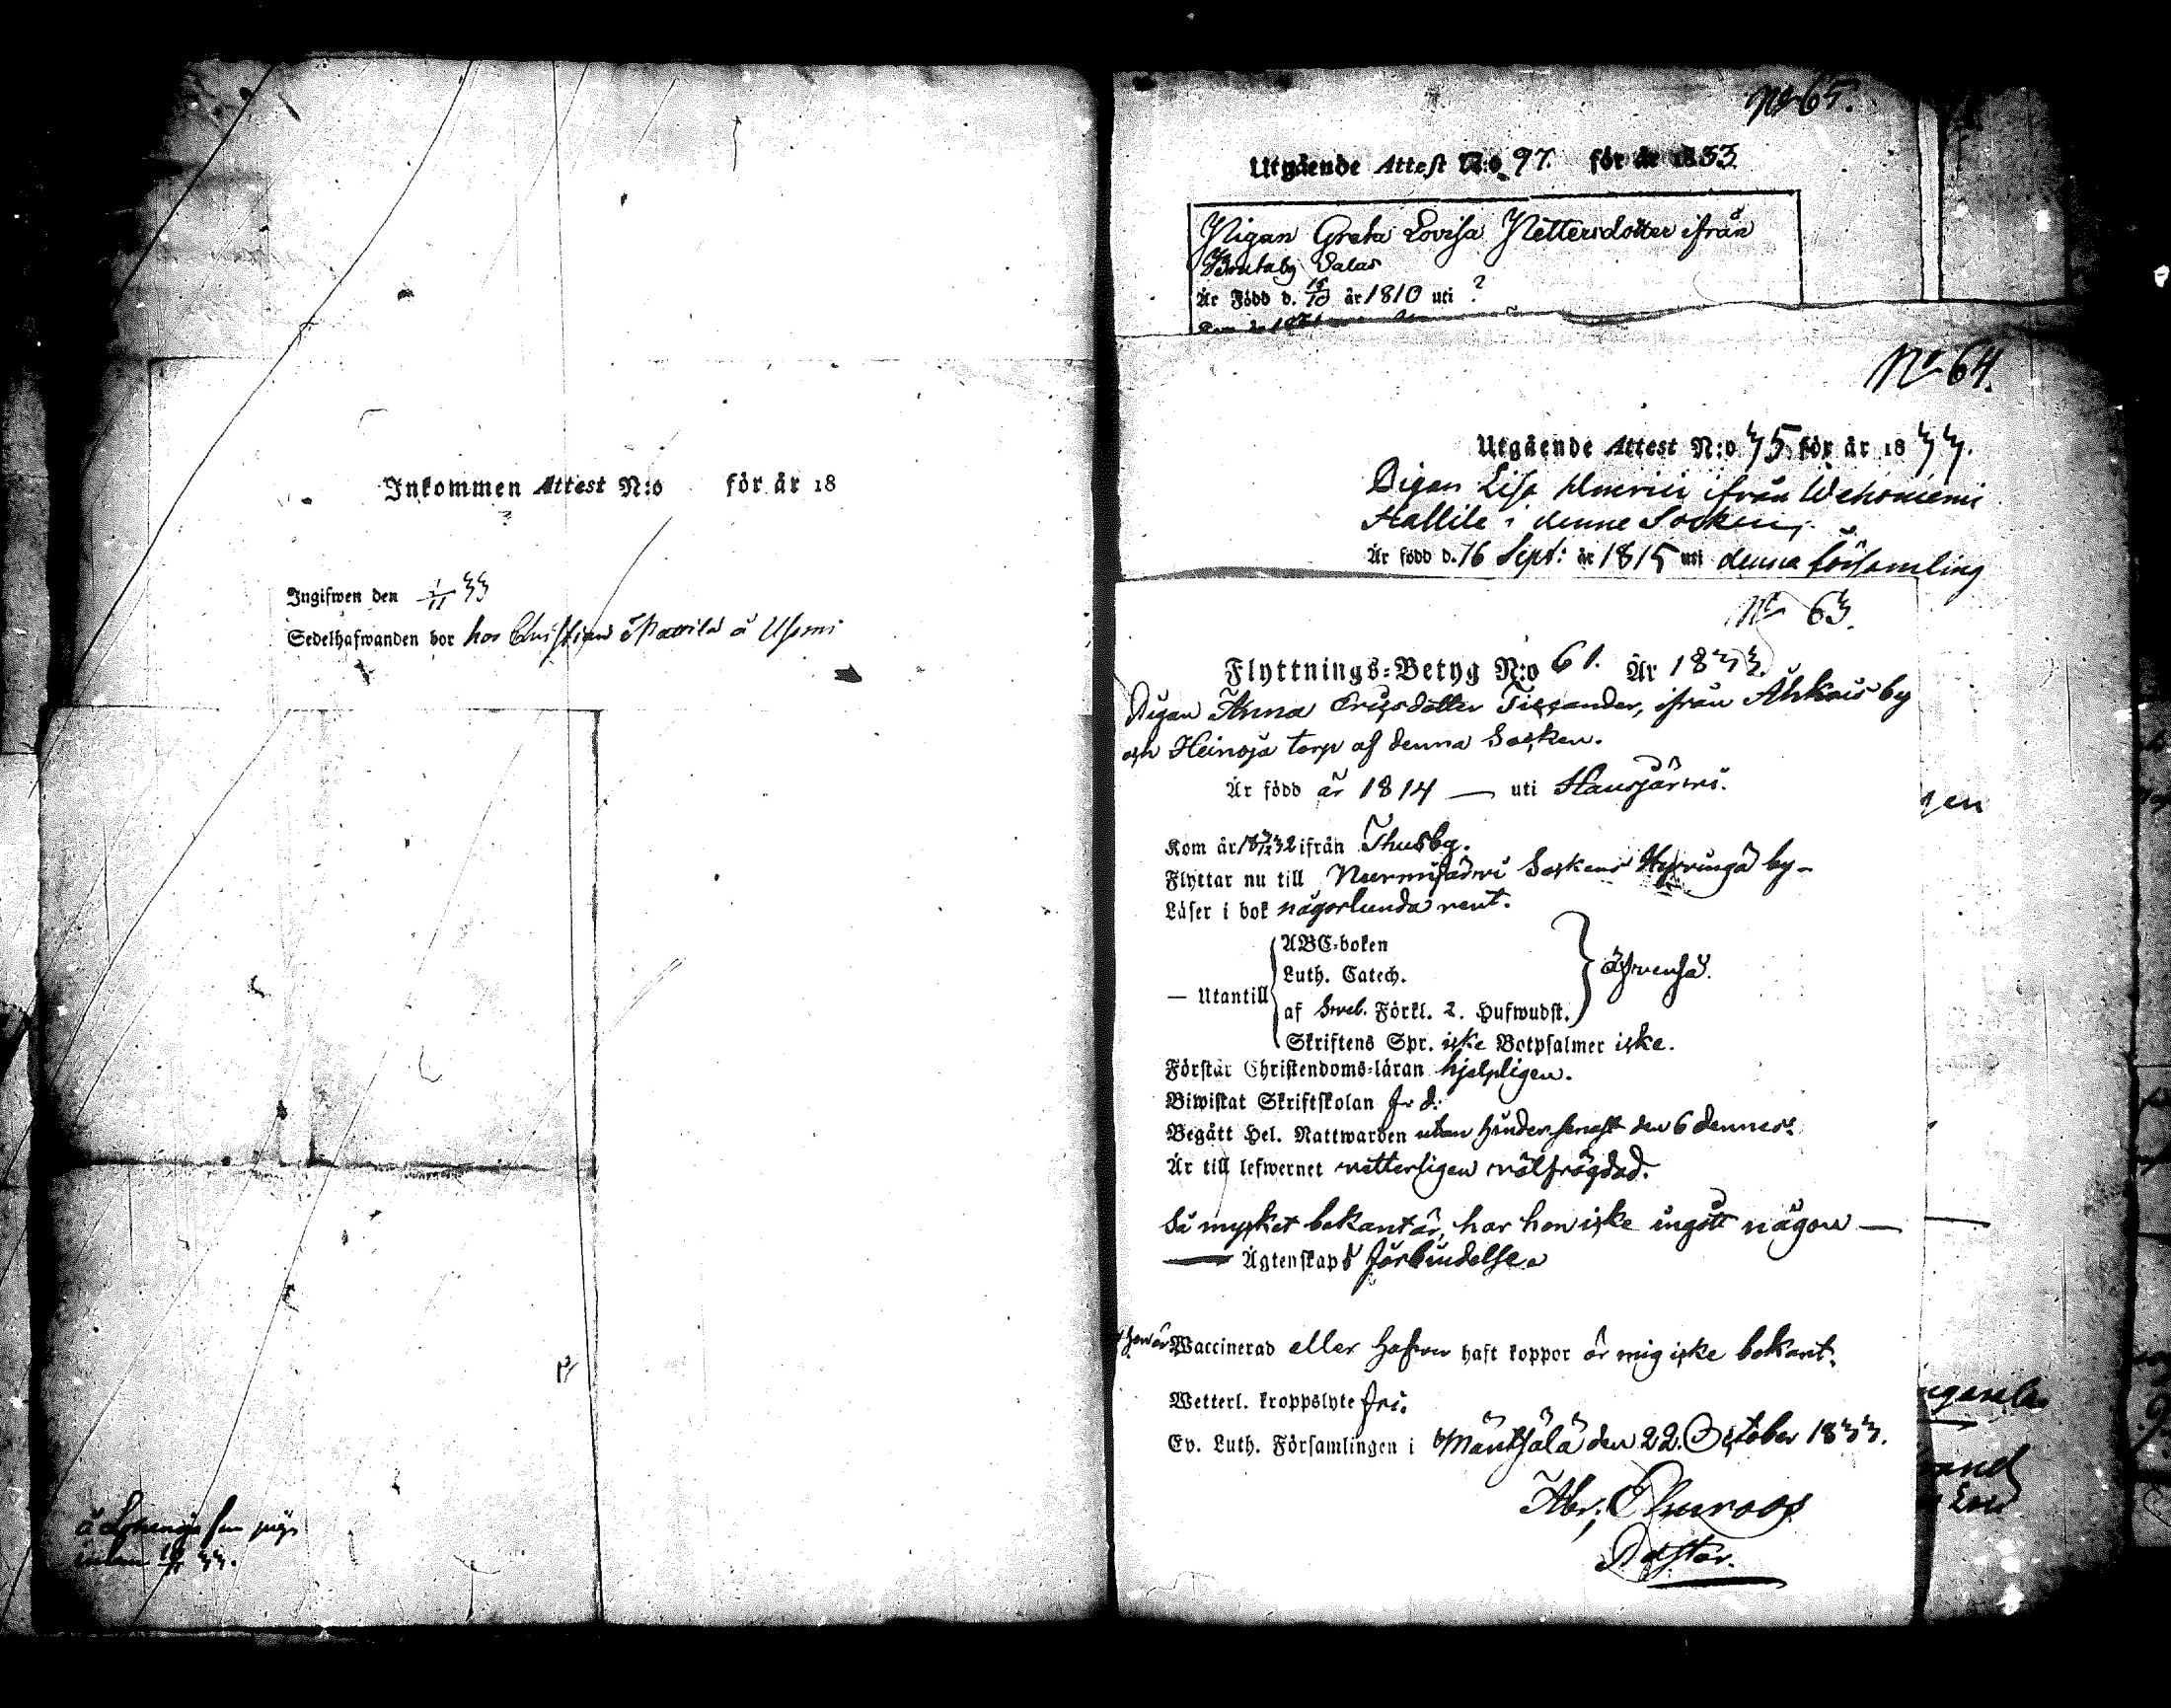 Inkommen Attest N:o för år 18
Ingifwen den 1/11 33
Sedelhafwanden bor hos Christian å
å
33.
No 65.
Utgående Attest N:o 97. för år 1833
Pigan Greta Lovisa Pettersdotter ifrån
Är Född d. 15/10 år 1810 uti ?
No 64.
Utgående Attest N:o 35 för år 1833.
Pigan Lisa ifrån Wehoniemi
i denne Socken,
Är född d. 16 Sept: år 1815 uti denna församling
No 63.
Flyttnings-Betyg N:o 61. År 1833.
Pigan Anna Ericsdotter Tissander, ifrån by
och Heinoja torp af denna Socken.
Är född år 1814 — uti Hausjärvi.
Kom år 1832 ifrån Thusby.
Flyttar nu till Nurmijärvi Sockens Hyvingä by –
Läser i bok någorlunda rent.
ABC-boken
Luth. Catech.
— Utantill äfvenså.
af Sveb. Förkl. 2. Hufwudst.
Skriftens Spr. icke Botpsalmer icke.
Förstår Christendoms-läran hjelpligen.
Biwistat Skriftskolan
Begått Hel. Nattwarden utan hinder senast den 6 dennes.
Är till lefwernet vetterligen välfrägdad.
Så mycket bekant är, har hon icke ingått någon —
— Ägtenskaps förbindelse.
Waccinerad eller haft koppor är mig icke bekant.
Wetterl. kroppslyte fri.
Ev. Luth. Församlingen i Mäntsälä den 22. October 1833.
Abr:
Pastor.